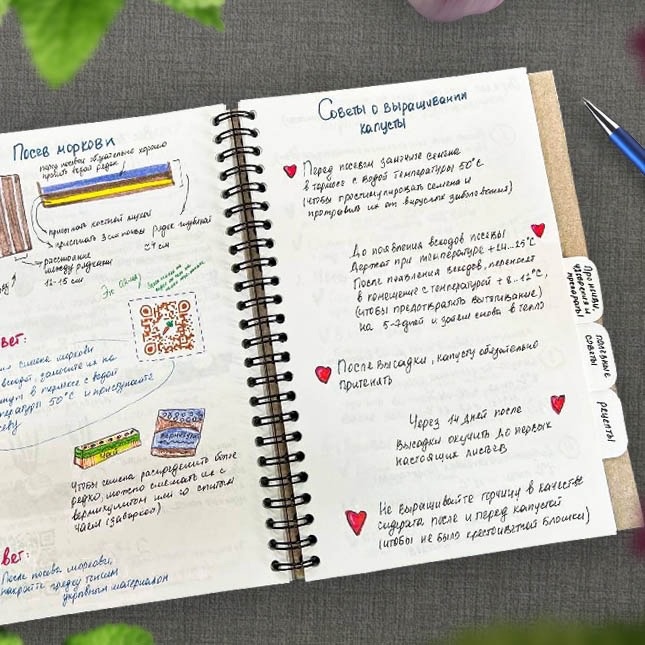 Посев моркови
перед посевом обязательно хорошо
пролить водой рядок
присыпать костной мукой
присыпать 3 см почвы
рядок глубиной
≈4 см
расстояние
между рядками
12-15 см
вет:
семена моркови
всходов, замочите их на
минут в термосе с водой
температуры 50°C и присушите
севу
Чай
вермикулит
Чтобы семена распределить более
редко, можно смешать их с
вермикулитом или со спитым
чаем (заваркой)
вет:
После посева моркови,
накройте грядку тонким
укрывным материалом
Советы о выращивании
капусты
Перед посевом замочите семена
в термосе с водой температуры 50°C
(чтобы простимулировать семена и
протравить их от вирусных заболевания)
До появления всходов посевы
держат при температуре +14...15°C
После появления всходов, переносят
в помещение с температурой +8...12°C,
(чтобы предотвратить вытягивание)
на 5-7 дней и затем снова в тепло
После высадки, капусту обязательно
притенять
Через 14 дней после
высадки окучить до первых
настоящих листьев
Не выращивайте горчицу в качестве
сидерата после и перед капустой
(чтобы не было крестоцветной блошки)
Про почву,
удобрения и
препараты
полезные
советы
рецепты